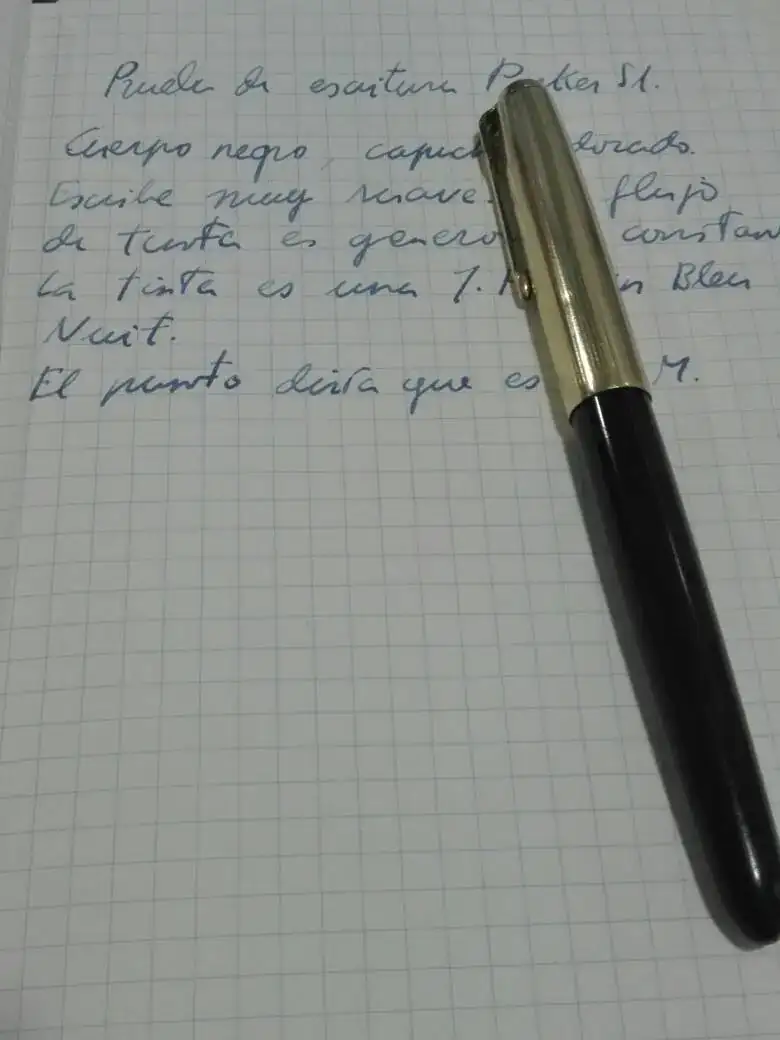 Prueba de escritura Parker 51.
Cuerpo negro, capuch dorado.
Escribe muy suave. flujo
de tinta es genero constan
La tinta es una J. H in Bleu
Nuit.
El punto diría que es M.